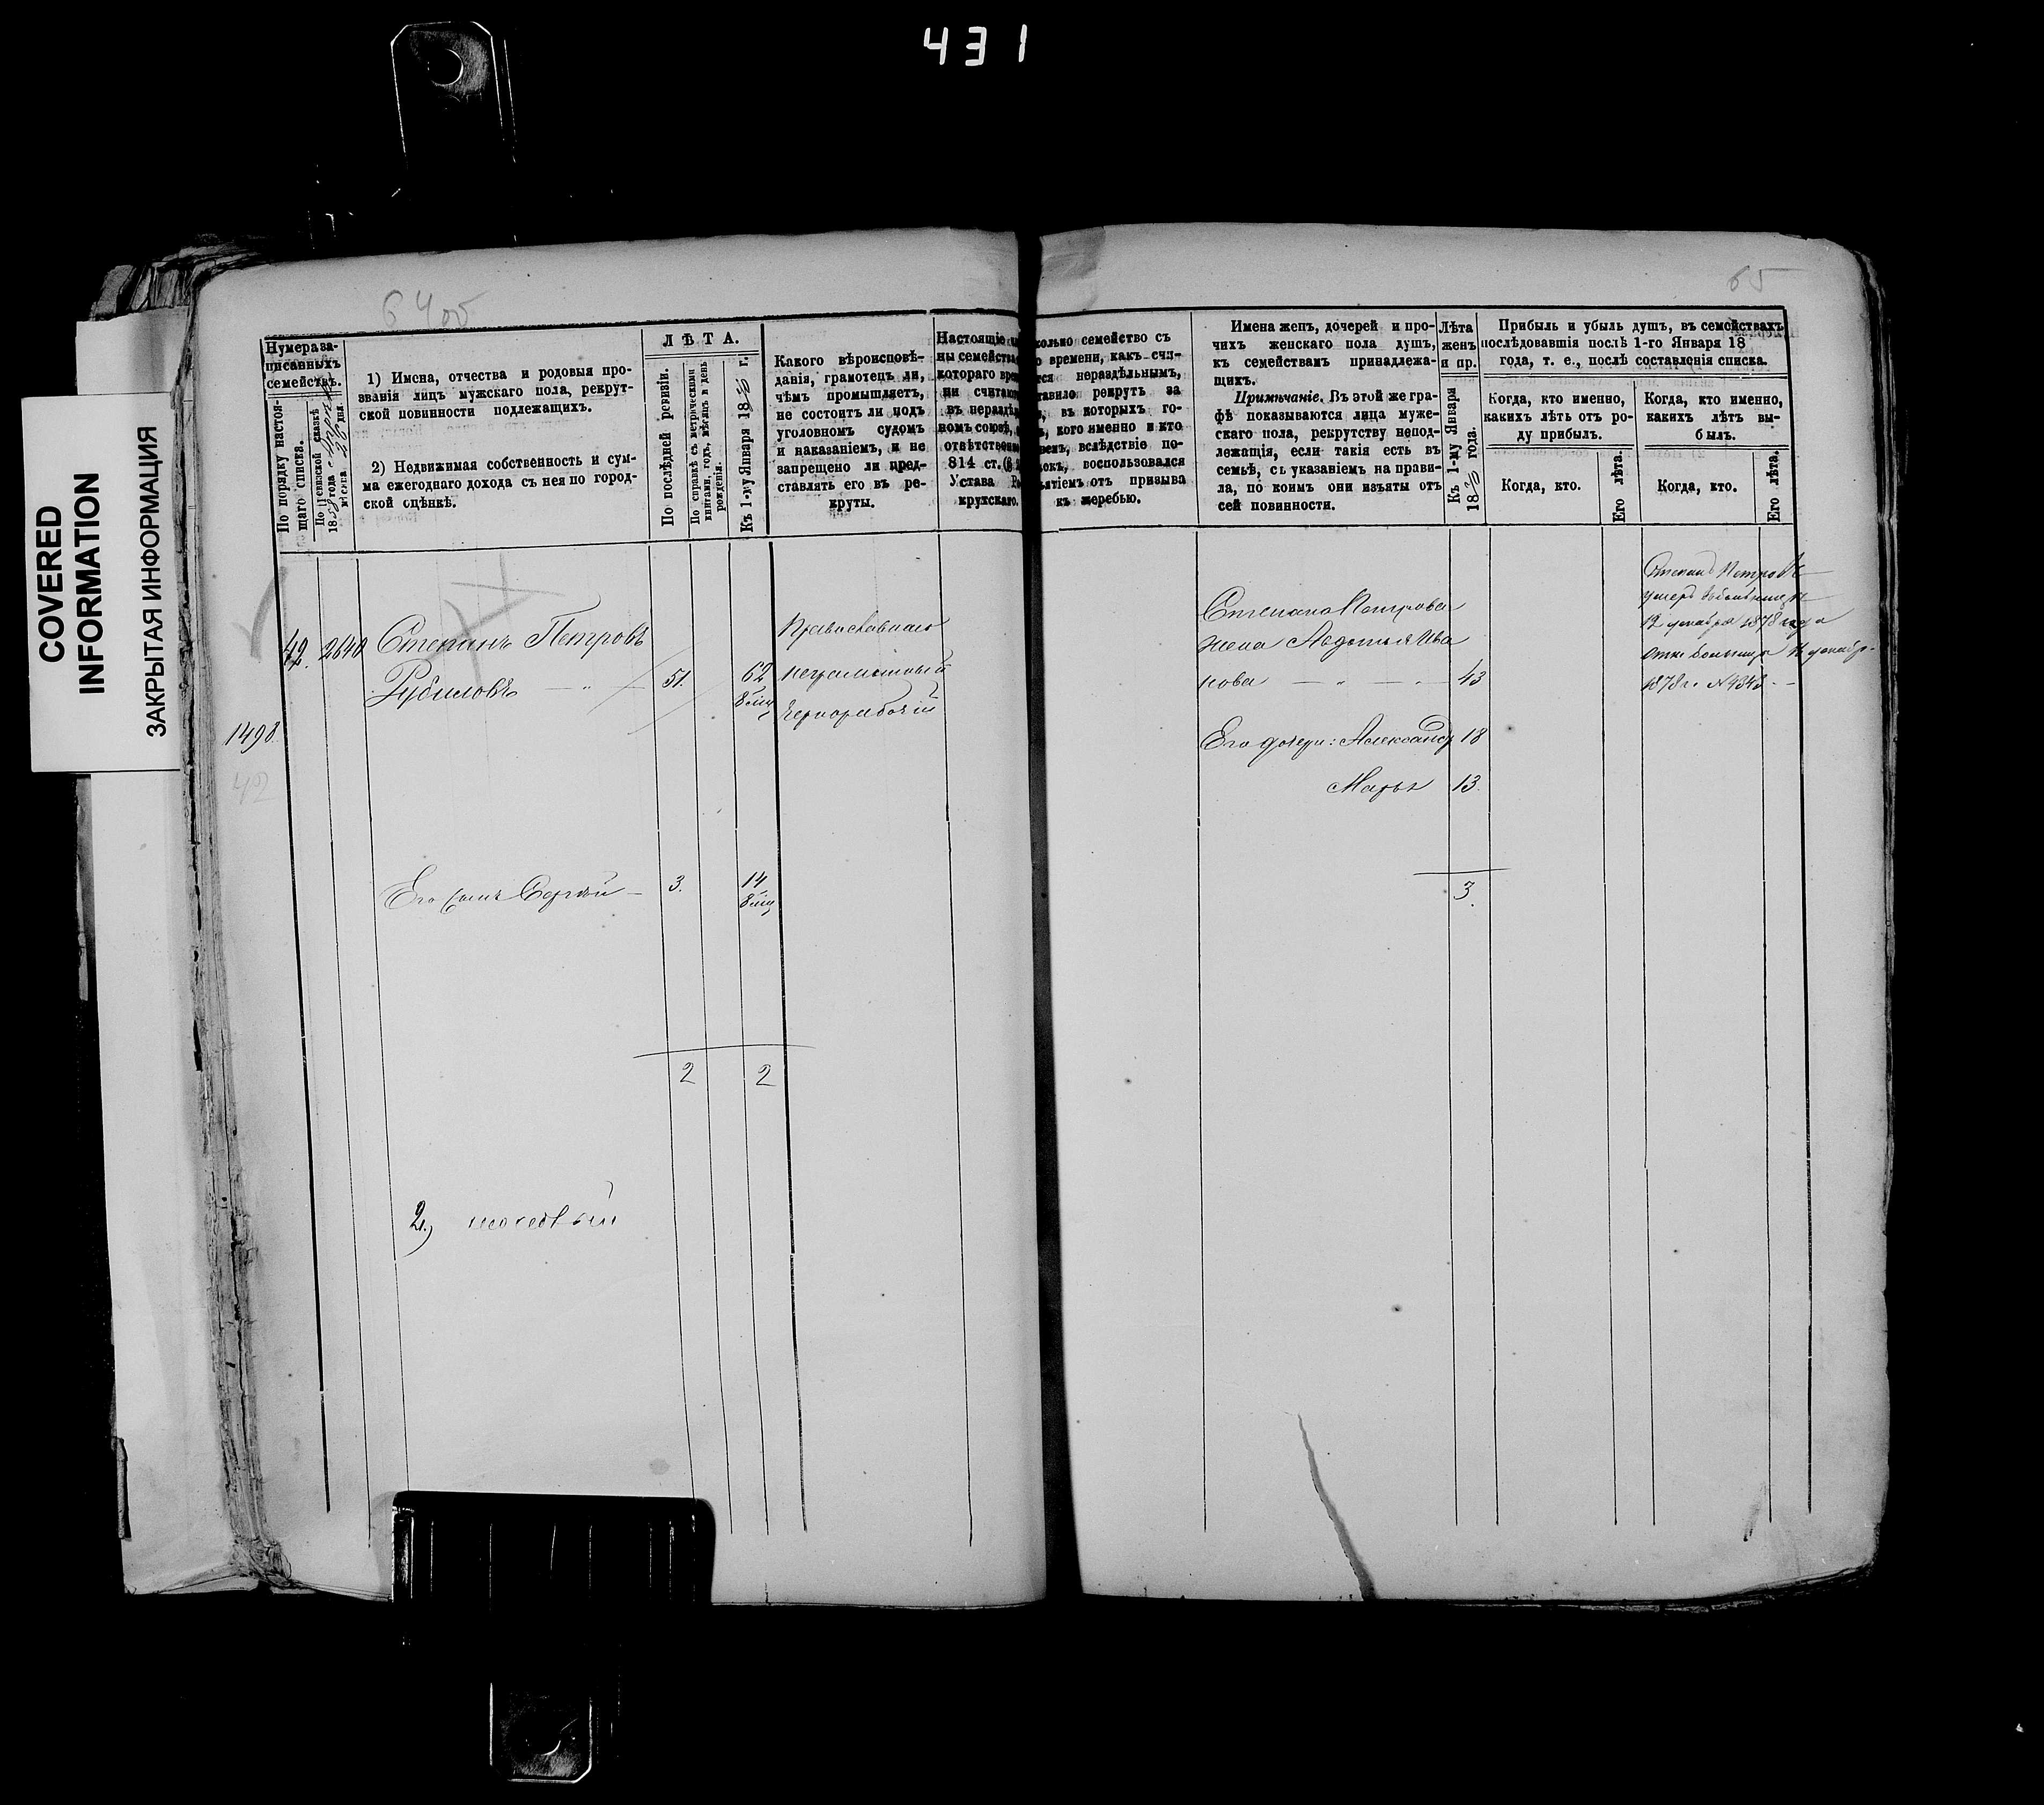 431
COVERED
INFORMATION
ЗАКРЫТАЯ ИНФОРМАЦИЯ
64об
65
Нумера за-
писанныхъ
семействъ.
По порядку настоя-
щаго списка.
По ревизской сказкѣ
1858 года
мѣсяца 22 дня.
1) Имена, отчества и родовыя про-
званія лицъ мужскаго пола, рекрут-
ской повинности подлежащихъ.
2) Недвижимая собственность и сум-
ма ежегоднаго дохода съ нея по город-
ской оцѣнкѣ.
ЛѢТА.
По послѣдней ревизіи.
По справкѣ съ метрическими
книгами, годъ, мѣсяцъ и день
рожденія.
Къ 1-му Января 18 г.
Какого вѣроисповѣ-
данія, грамотецъ ли,
чѣмъ промышляетъ,
не состоитъ ли подъ
уголовномъ судомъ
и наказаніемъ, и не
запрещено ли пред-
ставлять его въ ре-
круты.
Настоящіе
ны семейства
котораго вре
ни считают
въ нераздѣл
номъ союзѣ,
отвѣтственно
814 ст.
Устава Ре
крутскаго.
колько семейство съ
о времени, какъ счи-
тся нераздѣльнымъ,
тавило рекрутъ за
, въ которыхъ го-
, кого именно и кто
емъ, вслѣдствіе по-
докъ, воспользовался
ятіемъ отъ призыва
къ жеребью.
Имена женъ, дочерей и про-
чихъ женскаго пола душъ,
къ семействамъ принадлежа-
щихъ.
Примѣчаніе. Въ этой же гра-
фѣ показываются лица муже-
скаго пола, рекрутству непод-
лежащія, если такія есть въ
семьѣ, съ указаніемъ на прави-
ла, по коимъ они изъяты отъ
сей повинности.
Лѣта
женъ
и пр.
Къ 1-му Января
18 года.
Прибыль и убыль душъ, въ семействахъ
послѣдовавшія послѣ 1-го Января 18
года, т. е., послѣ составленія списка.
Когда, кто именно,
какихъ лѣтъ отъ ро-
ду прибылъ.
Когда, кто.
Его лѣта.
Когда, кто именно,
какихъ лѣтъ вы-
былъ.
Когда, кто.
Его лѣта.
42. 2640 Степанъ Петровъ
Рубиловъ — „ — 51. 62
8 мѣц
Православнаго
неграмотный
Чернорабочій
1498.
42
Его сынъ Сергѣй — 3. 14
8 мѣц
2 2
2)
Степана Петрова
жена Авдотья Ива
нова — „ — „ — 43
Его дочери: Александр 18
Марья 13.
3.
Степанъ Петровъ
умеръ въ больницѣ
12 декабря 1878 года
больницы 12 декабр.
1878 г. № 4343. —